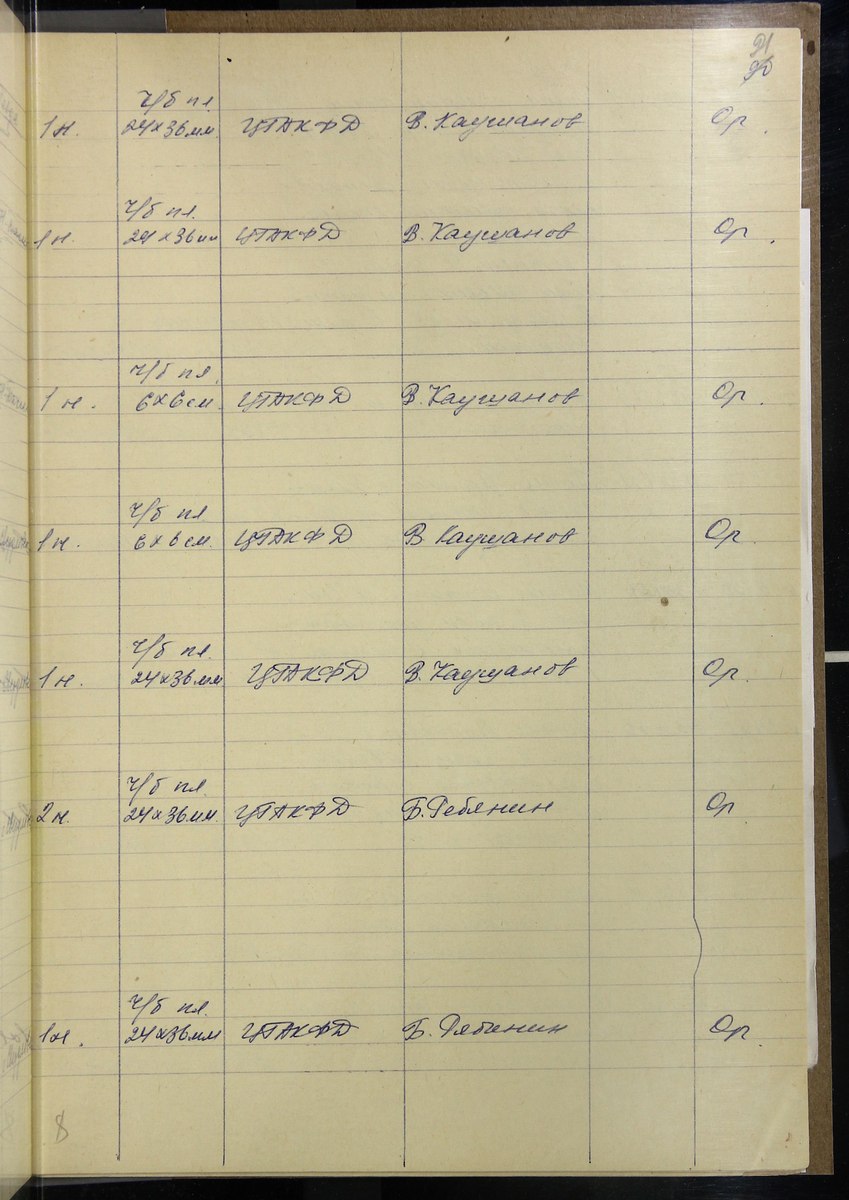 21
20
ч/б пл.
1н. 24х36мм. ЦГАКФД В. Каушанов Ор.
ч/б пл.
1н. 24х36мм ЦГАКФД В. Каушанов Ор.
ч/б пл.
1н. 6х6см. ЦГАКФД В. Каушанов Ор.
ч/б пл
1н. 6х6см. ЦГАКФД В Каушанов Ор.
ч/б пл.
1н. 24х36мм ЦГАКФД В. Каушанов Ор.
ч/б пл.
2н. 24х36мм. ЦГАКФД Б. Ребянин Ор
ч/б пл.
1н. 24х36мм ЦГАКФД Б. Рябинин Ор.
8